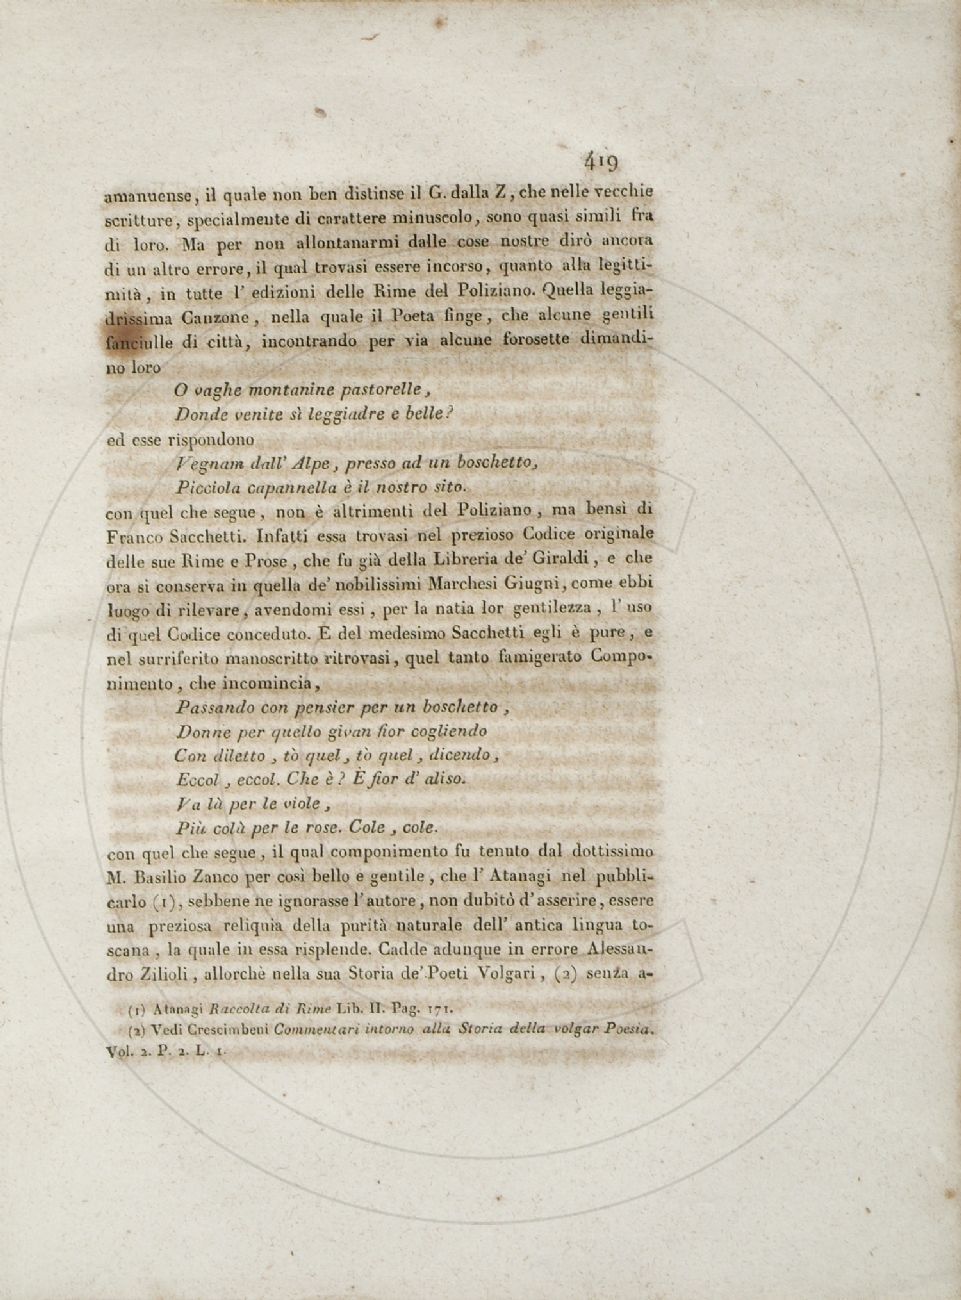 419
amanuense, il quale non ben distinse il G. dalla Z, che nelle vecchie
scritture, specialmente di carattere minuscolo, sono quasi simili fra
di loro. Ma per non allontanarmi dalle cose nostre dirò ancora
di un altro errore, il qual trovasi essere incorso, quanto alla legitti-
mità, in tutte l' edizioni delle Rime del Poliziano. Quella leggia-
drissima Canzone, nella quale il Poeta finge, che alcune gentili
fanciulle di città, incontrando per via alcune forosette dimandi-
no loro
O vaghe montanine pastorelle,
Donde venite sì leggiadre e belle?
ed esse rispondono
Vegnam dall' Alpe, presso ad un boschetto,
Picciola capannella è il nostro sito.
con quel che segue, non è altrimenti del Poliziano, ma bensì di
Franco Sacchetti. Infatti essa trovasi nel prezioso Codice originale
delle sue Rime e Prose, che fu già della Libreria de' Giraldi, e che
ora si conserva in quella de' nobilissimi Marchesi Giugni, come ebbi
luogo di rilevare, avendomi essi, per la natia lor gentilezza, l' uso
di quel Codice conceduto. E del medesimo Sacchetti egli è pure, e
nel surriferito manoscritto ritrovasi, quel tanto famigerato Compo-
nimento, che incomincia,
Passando con pensier per un boschetto,
Donne per quello givan fior cogliendo
Con diletto, tò quel, tò quel, dicendo,
Eccol, eccol. Che è? È fior d' aliso.
Va là per le viole,
Più colà per le rose. Cole, cole.
con quel che segue, il qual componimento fu tenuto dal dottissimo
M. Basilio Zanco per così bello e gentile, che l' Atanagi nel pubbli-
carlo (1), sebbene ne ignorasse l'autore, non dubitò d'asserire, essere
una preziosa reliquia della purità naturale dell' antica lingua to-
scana, la quale in essa risplende. Cadde adunque in errore Alessan-
dro Zilioli, allorchè nella sua Storia de' Poeti Volgari, (2) senza a-
(1) Atanagi Raccolta di Rime Lib. II. Pag. 171.
(2) Vedi Crescimbeni Commentari intorno alla Storia della volgar Poesia.
Vol. 2. P. 2. L. 1.